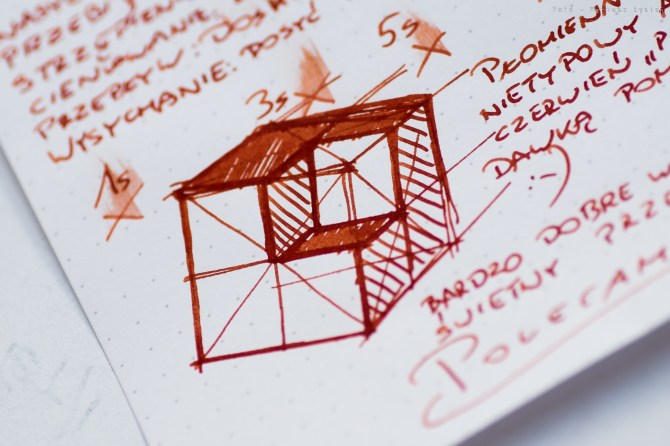 PRZEBI
STRZĘPIENIE
CIENIOWANIE. DOŚĆ
PRZEPŁYW. DOŚĆ
WYSYCHANIE. DOŚĆ
1s
3s
5s
PŁOMIENN
NIETYPOWY
CZERWIEŃ "P
DAWKĄ POM
:-)
BARDZO DOBRE W
ŚWIETNY PRZE
POLECAM